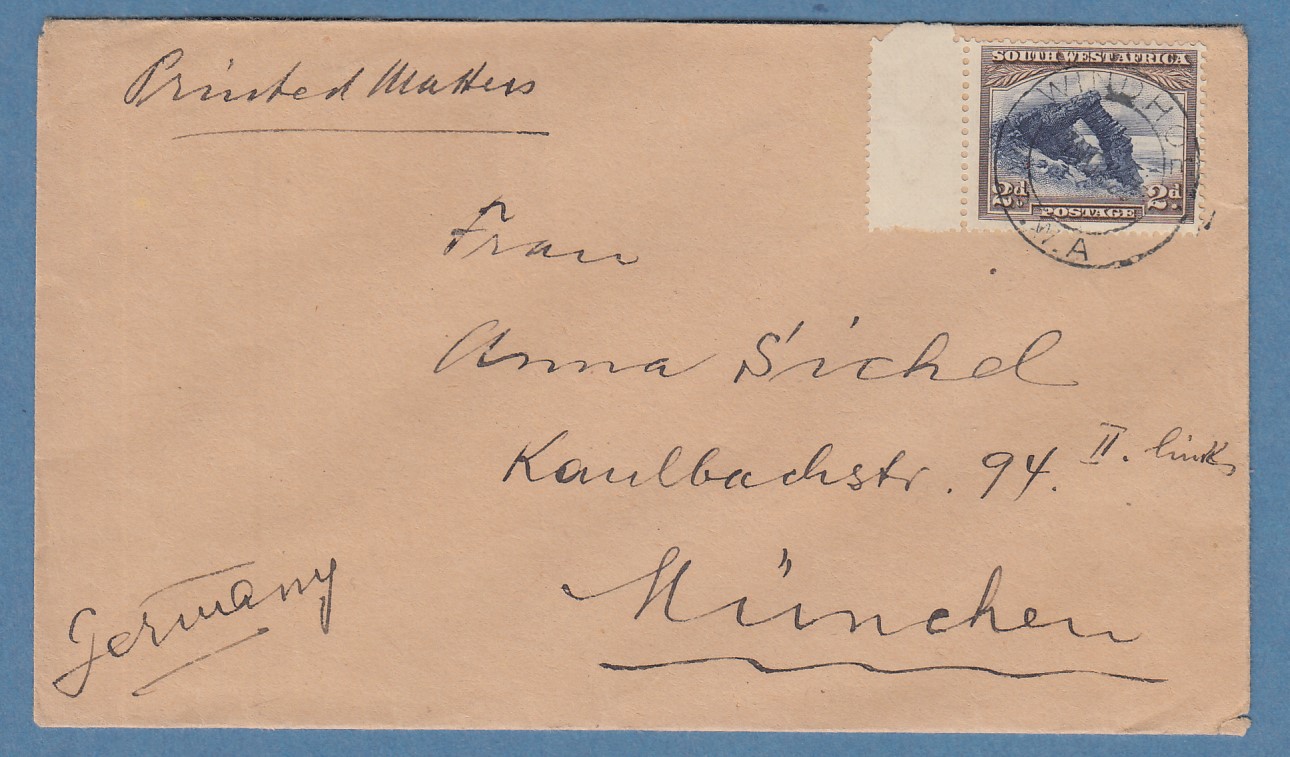 Printed Matters
SOUTH WEST AFRICA
2d. 2d.
POSTAGE
WINDHOEK
W.A
Frau
Anna Sichel
Kaulbachstr. 94. II. links
München
Germany